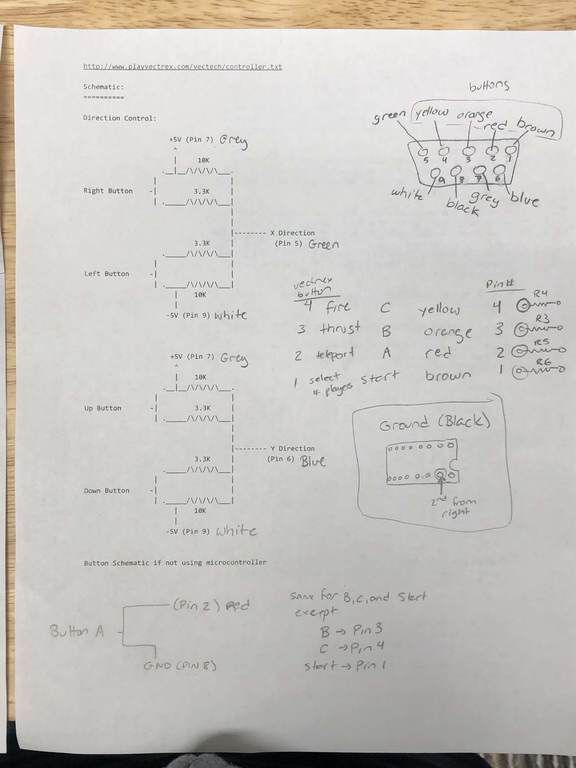 http://www.playvectrex.com/vectech/controller.txt
Schematic:
==========
Direction Control:
+5V (Pin 7) Grey
10K
.___/\/\/\/\___.
Right Button -|
3.3K
.___/\/\/\/\___|
|-------- X Direction
(Pin 5) Green
3.3K
.___/\/\/\/\___|
Left Button -|
.___/\/\/\/\___|
10K
-5V (Pin 9) white
+5V (Pin 7) Grey
10K
.___/\/\/\/\___.
Up Button -|
3.3K
.___/\/\/\/\___|
|-------- Y Direction
(Pin 6) Blue
3.3K
.___/\/\/\/\___|
Down Button -|
.___/\/\/\/\___|
10K
-5V (Pin 9) white
Button Schematic if not using microcontroller
Button A
(Pin 2) Red
GND (PIN 8)
buttons
green yellow orange red brown
5 4 3 2 1
9 8 7 6
white black grey blue
vectrex button Pin#
4 fire C yellow 4 R4
3 thrust B orange 3 R3
2 teleport A red 2 R5
1 select # players start brown 1 R6
Ground (Black)
2nd from
right
same for B, C, and Start
except
B → Pin 3
C → Pin 4
start → Pin 1